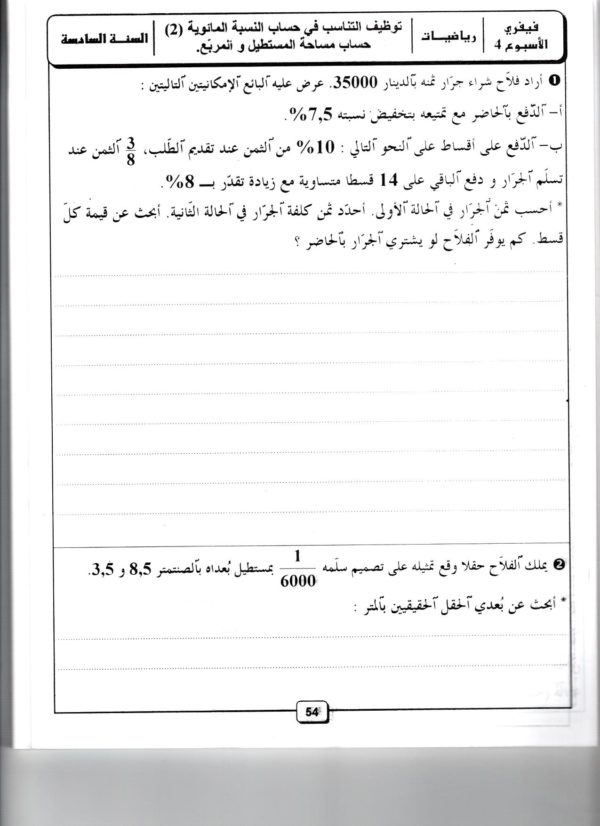 فيفري
الأسبوع 4
رياضيات
توظيف التناسب في حساب النسبة المائوية (2)
حساب مساحة المستطيل و المربّع.
السنة السادسة
❶ أراد فلاّح شراء جرّار ثمنه بالدينار 35000. عرض عليه البائع الإمكانيتين التاليتين :
أ- الدّفع بالحاضر مع تمتيعه بتخفيض نسبته 7,5%.
ب- الدّفع على أقساط على النحو التالي : 10% من الثمن عند تقديم الطّلب، 3/8 الثمن عند
تسلّم الجرّار و دفع الباقي على 14 قسطا متساوية مع زيادة تقدّر بــ 8%.
* أحسب ثمن الجرّار في الحالة الأولى. أحدّد ثمن كلفة الجرّار في الحالة الثّانية. أبحث عن قيمة كلّ
قسط. كم يوفّر الفلاّح لو يشتري الجرّار بالحاضر ؟
❷ يملك الفلاّح حقلا وقع تمثيله على تصميم سلّمه 1/6000 بمستطيل بُعداه بالصنتمتر 8,5 و 3,5.
* أبحث عن بُعدي الحقل الحقيقيين بالمتر :
54